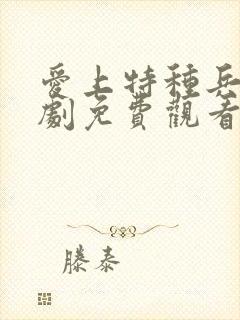 愛上特種兵
劇免費觀看
滕泰